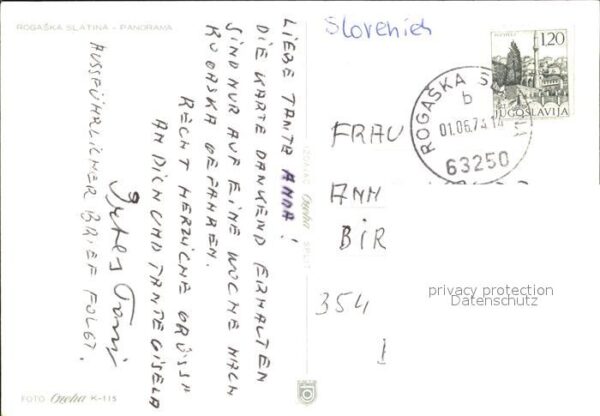 ROGAŠKA SLATINA - PANORAMA
Slovenien
LIEBE TANTE ANDA!
DIE KARTE DANKEND ERHALTEN
SIND NUR AUF EINE WOCHE NACH
ROGASKA GEFAHREN.
RECHT HERZLICHE GRÜSSE
AN DICH UND TANTE GISELA
AUSFÜHRLICHER BRIEF FOLGT.
1.20
JUGOSLAVIJA
ROGAŠKA S
b
01.06.74.14
63250
FRAU
ANN
BIR
354
1
privacy protection
Datenschutz
FOTO K-115